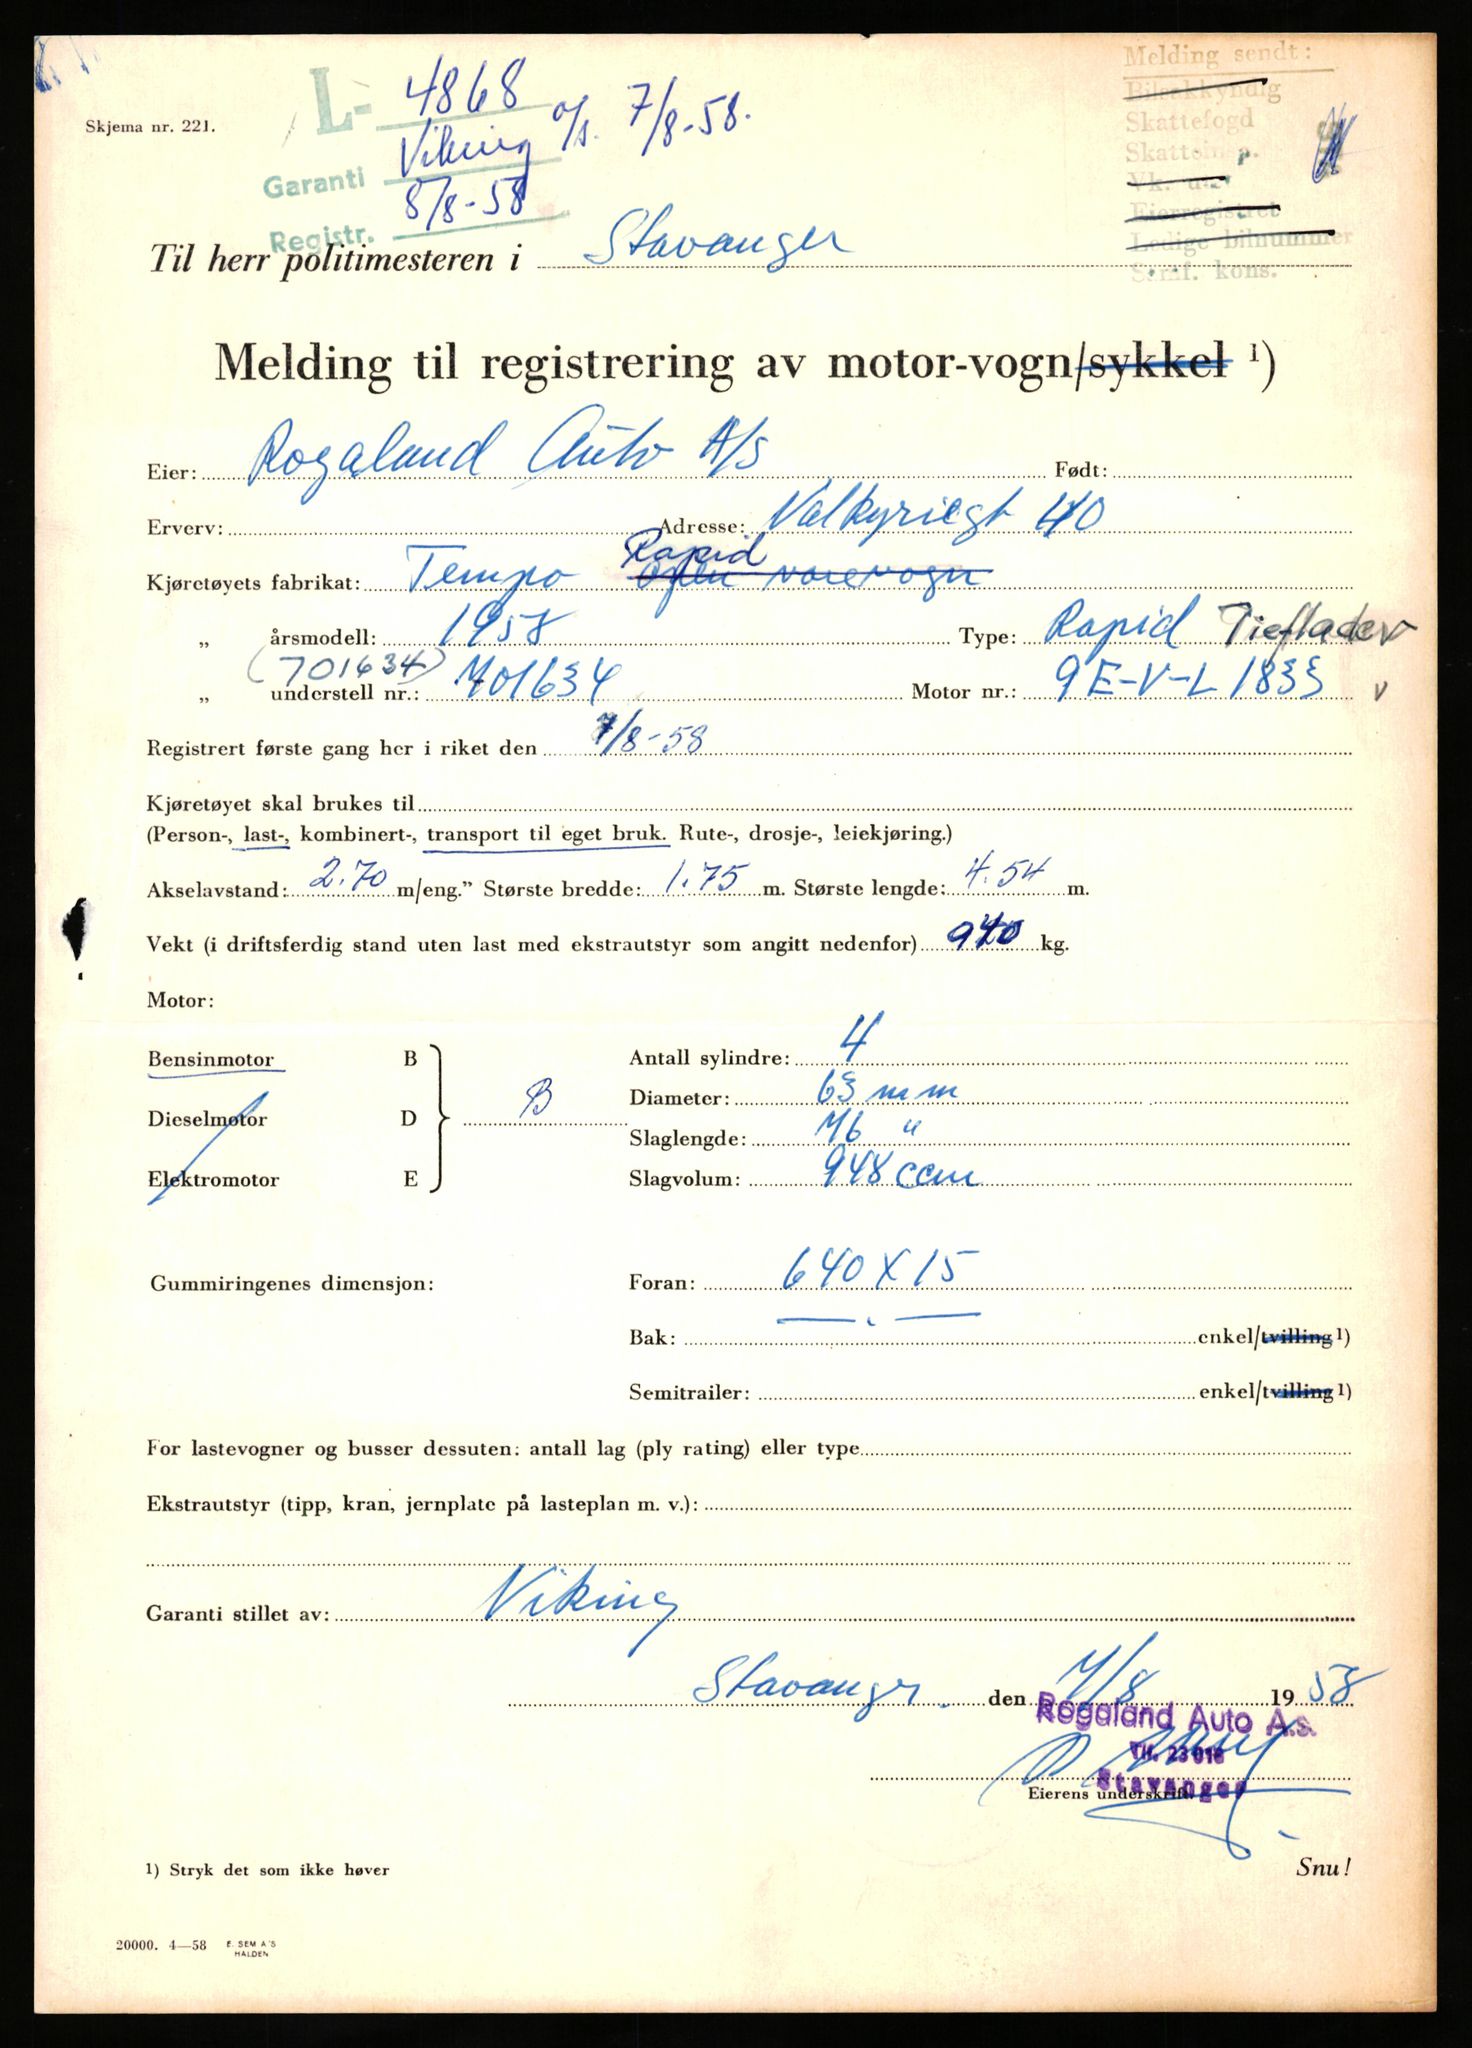 Skjema nr. 221.
L- 4868
Garanti Viking a/s. 7/8-58.
Registr. 8/8-58
Melding sendt:
Bilsakkyndig
Skattefogd
Eierregistret
Ledige bilnummer
Til herr politimesteren i Stavanger
Melding til registrering av motor-vogn/sykkel 1)
Eier: Rogaland Auto A/S Født:
Erverv: Adresse: Valkyriegt 40
Rapid
Kjøretøyets fabrikat: Tempo Open varevogn
„ årsmodell: 1958 Type: Rapid Tieflader
(701634)
„ understell nr.: 701634 Motor nr.: 9E-V-L 1833 v
Registrert første gang her i riket den 7/8-58
Kjøretøyet skal brukes til
(Person-, last-, kombinert-, transport til eget bruk. Rute-, drosje-, leiekjøring.)
Akselavstand: 2.70 m/eng." Største bredde: 1.75 m. Største lengde: 4.54 m.
Vekt (i driftsferdig stand uten last med ekstrautstyr som angitt nedenfor) 940 kg.
Motor:
Bensinmotor B Antall sylindre: 4
Diameter: 63 mm
Dieselmotor D B
Slaglengde: 76 "
Elektromotor E Slagvolum: 948 ccm
Gummiringenes dimensjon: Foran: 640 X 15
Bak: enkel/tvilling 1)
Semitrailer: enkel/tvilling 1)
For lastevogner og busser dessuten: antall lag (ply rating) eller type
Ekstrautstyr (tipp, kran, jernplate på lasteplan m. v.):
Garanti stillet av: Viking
Stavanger. den 7/8 1958
Rogaland Auto A.s.
Tlf. 23018
Stavanger
Eierens underskrift.
1) Stryk det som ikke høver
Snu!
20000. 4—58 E. SEM A'S
HALDEN